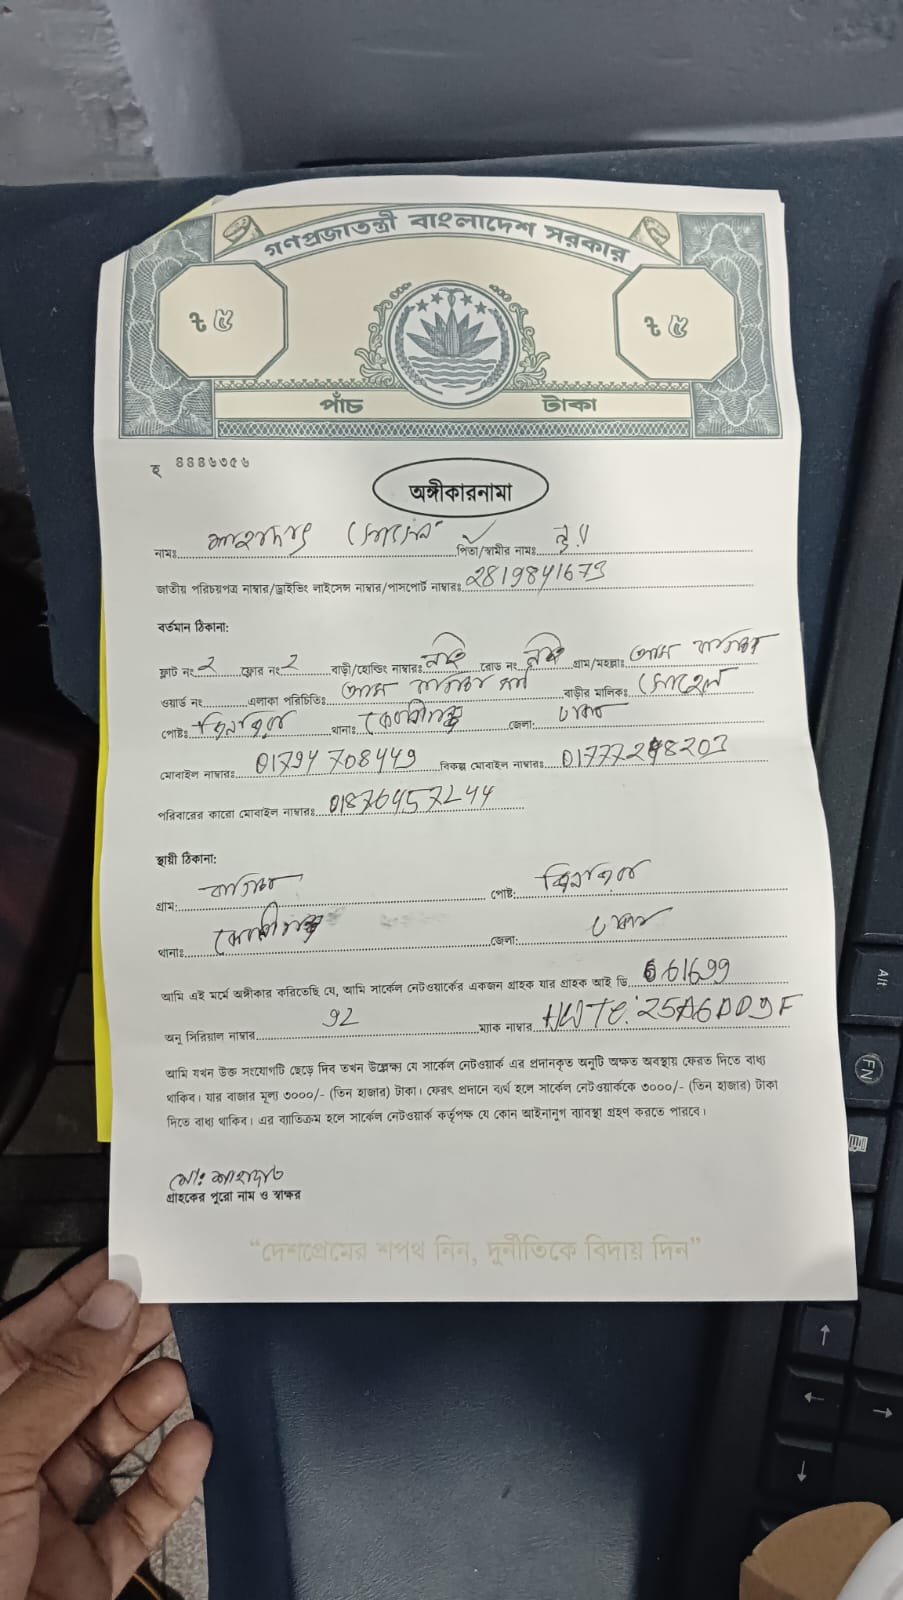 গণপ্রজাতন্ত্রী বাংলাদেশ সরকার
৳ ৫ ৳ ৫
পাঁচ টাকা
হ ৪৪৪৬৩৫৬
অঙ্গীকারনামা
নামঃ পিতা/স্বামীর নামঃ
জাতীয় পরিচয়পত্র নাম্বার/ড্রাইভিং লাইসেন্স নাম্বার/পাসপোর্ট নাম্বারঃ 2819841673
বর্তমান ঠিকানা:
ফ্লাট নং 2 ফ্লোর নং 2 বাড়ী/হোল্ডিং নাম্বারঃ নাই রোড নং নাই গ্রাম/মহল্লাঃ
ওয়ার্ড নং এলাকা পরিচিতিঃ বাড়ীর মালিকঃ সোহেল
পোষ্টঃ থানাঃ কেরানীগঞ্জ জেলা: ঢাকা
মোবাইল নাম্বারঃ 01794708449 বিকল্প মোবাইল নাম্বারঃ
পরিবারের কারো মোবাইল নাম্বারঃ 01876457244
স্থায়ী ঠিকানা:
গ্রাম: পোষ্ট:
থানাঃ কেরানীগঞ্জ জেলা: ঢাকা
আমি এই মর্মে অঙ্গীকার করিতেছি যে, আমি সার্কেল নেটওয়ার্কের একজন গ্রাহক যার গ্রাহক আই ডি
অনু সিরিয়াল নাম্বার 92 ম্যাক নাম্বার HWTC: 25A6DD9F
আমি যখন উক্ত সংযোগটি ছেড়ে দিব তখন উল্লেক্ষ্য যে সার্কেল নেটওয়ার্ক এর প্রদানকৃত অনুটি অক্ষত অবস্থায় ফেরত দিতে বাধ্য
থাকিব। যার বাজার মূল্য ৩০০০/- (তিন হাজার) টাকা। ফেরৎ প্রদানে ব্যর্থ হলে সার্কেল নেটওয়ার্ককে ৩০০০/- (তিন হাজার) টাকা
দিতে বাধ্য থাকিব। এর ব্যাতিক্রম হলে সার্কেল নেটওয়ার্ক কর্তৃপক্ষ যে কোন আইনানুগ ব্যাবস্থা গ্রহণ করতে পারবে।
মো: শাহাদাত
গ্রাহকের পুরো নাম ও স্বাক্ষর
“দেশপ্রেমের শপথ নিন, দুর্নীতিকে বিদায় দিন”
Alt
FN
↑
← →
↓